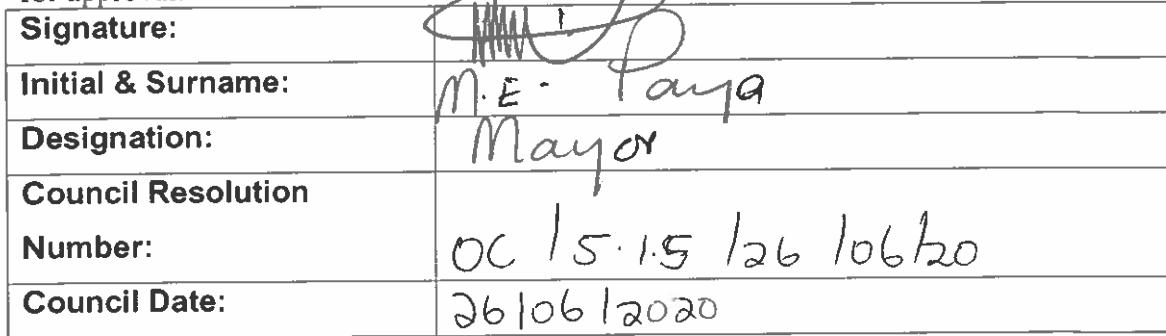 Signature:
Initial & Surname: M.E. Paya
Designation: Mayor
Council Resolution
Number: OC /5.1.5 /26 /06/20
Council Date: 26/06/2020